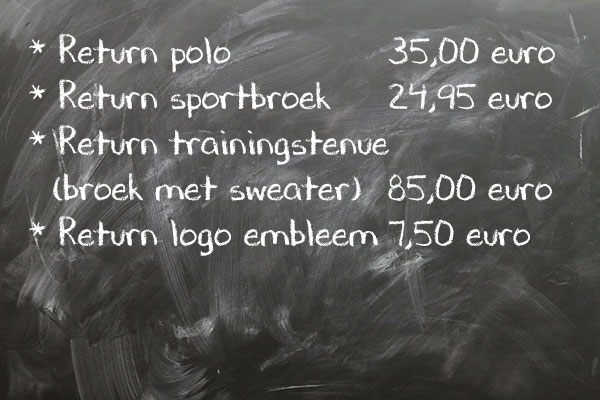 * Return polo 35,00 euro
* Return sportbroek 24,95 euro
* Return trainingstenue
(broek met sweater) 85,00 euro
* Return logo embleem 7,50 euro